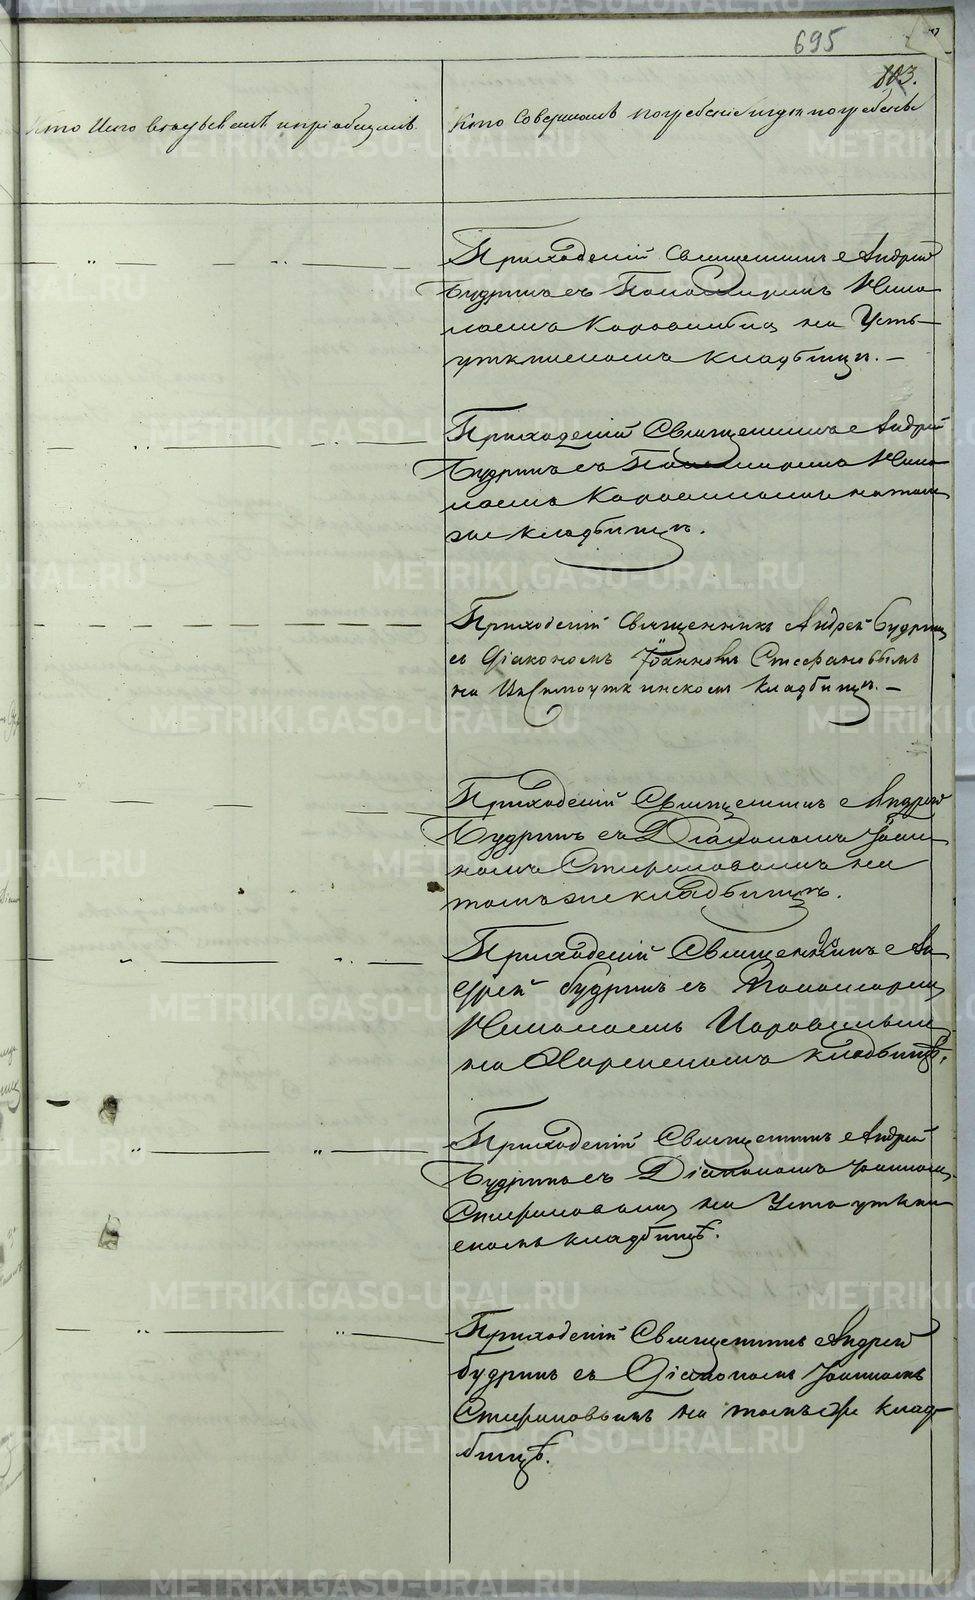 695
803.
Кто Исповѣдывалъ и пріобщалъ.
Кто Совершалъ погребеніе и гдѣ погребены
Приходскій Священникъ Андрей
Будринъ съ Пономаремъ Нико
лаемъ Короваевымъ на Усть
уткинскомъ кладбищѣ. —
Приходскій Священникъ Андрей
Будринъ съ Пономаремъ Нико
лаемъ на томъ
же кладбищѣ.
Приходскій Священникъ Андрей Будринъ
съ Діакономъ Іоанномъ Стефановымъ
на кладбищѣ. —
Приходскій Священникъ Андрей
Будринъ съ Діакономъ Іоан
номъ Стефановымъ на
томъ же кладбищѣ.
Приходскій Священникъ Ан
дрей Будринъ съ Пономаремъ
Николаемъ
на кладбищѣ.
Приходскій Священникъ Андрей
Будринъ съ Діакономъ Іоанномъ
Стефановымъ на Устоуткин
скомъ кладбищѣ.
Приходскій Священникъ Андрей
Будринъ съ Діакономъ Іоанномъ
Стефановымъ на томъ же клад
бищѣ.
METRIKI.GASO-URAL.RU